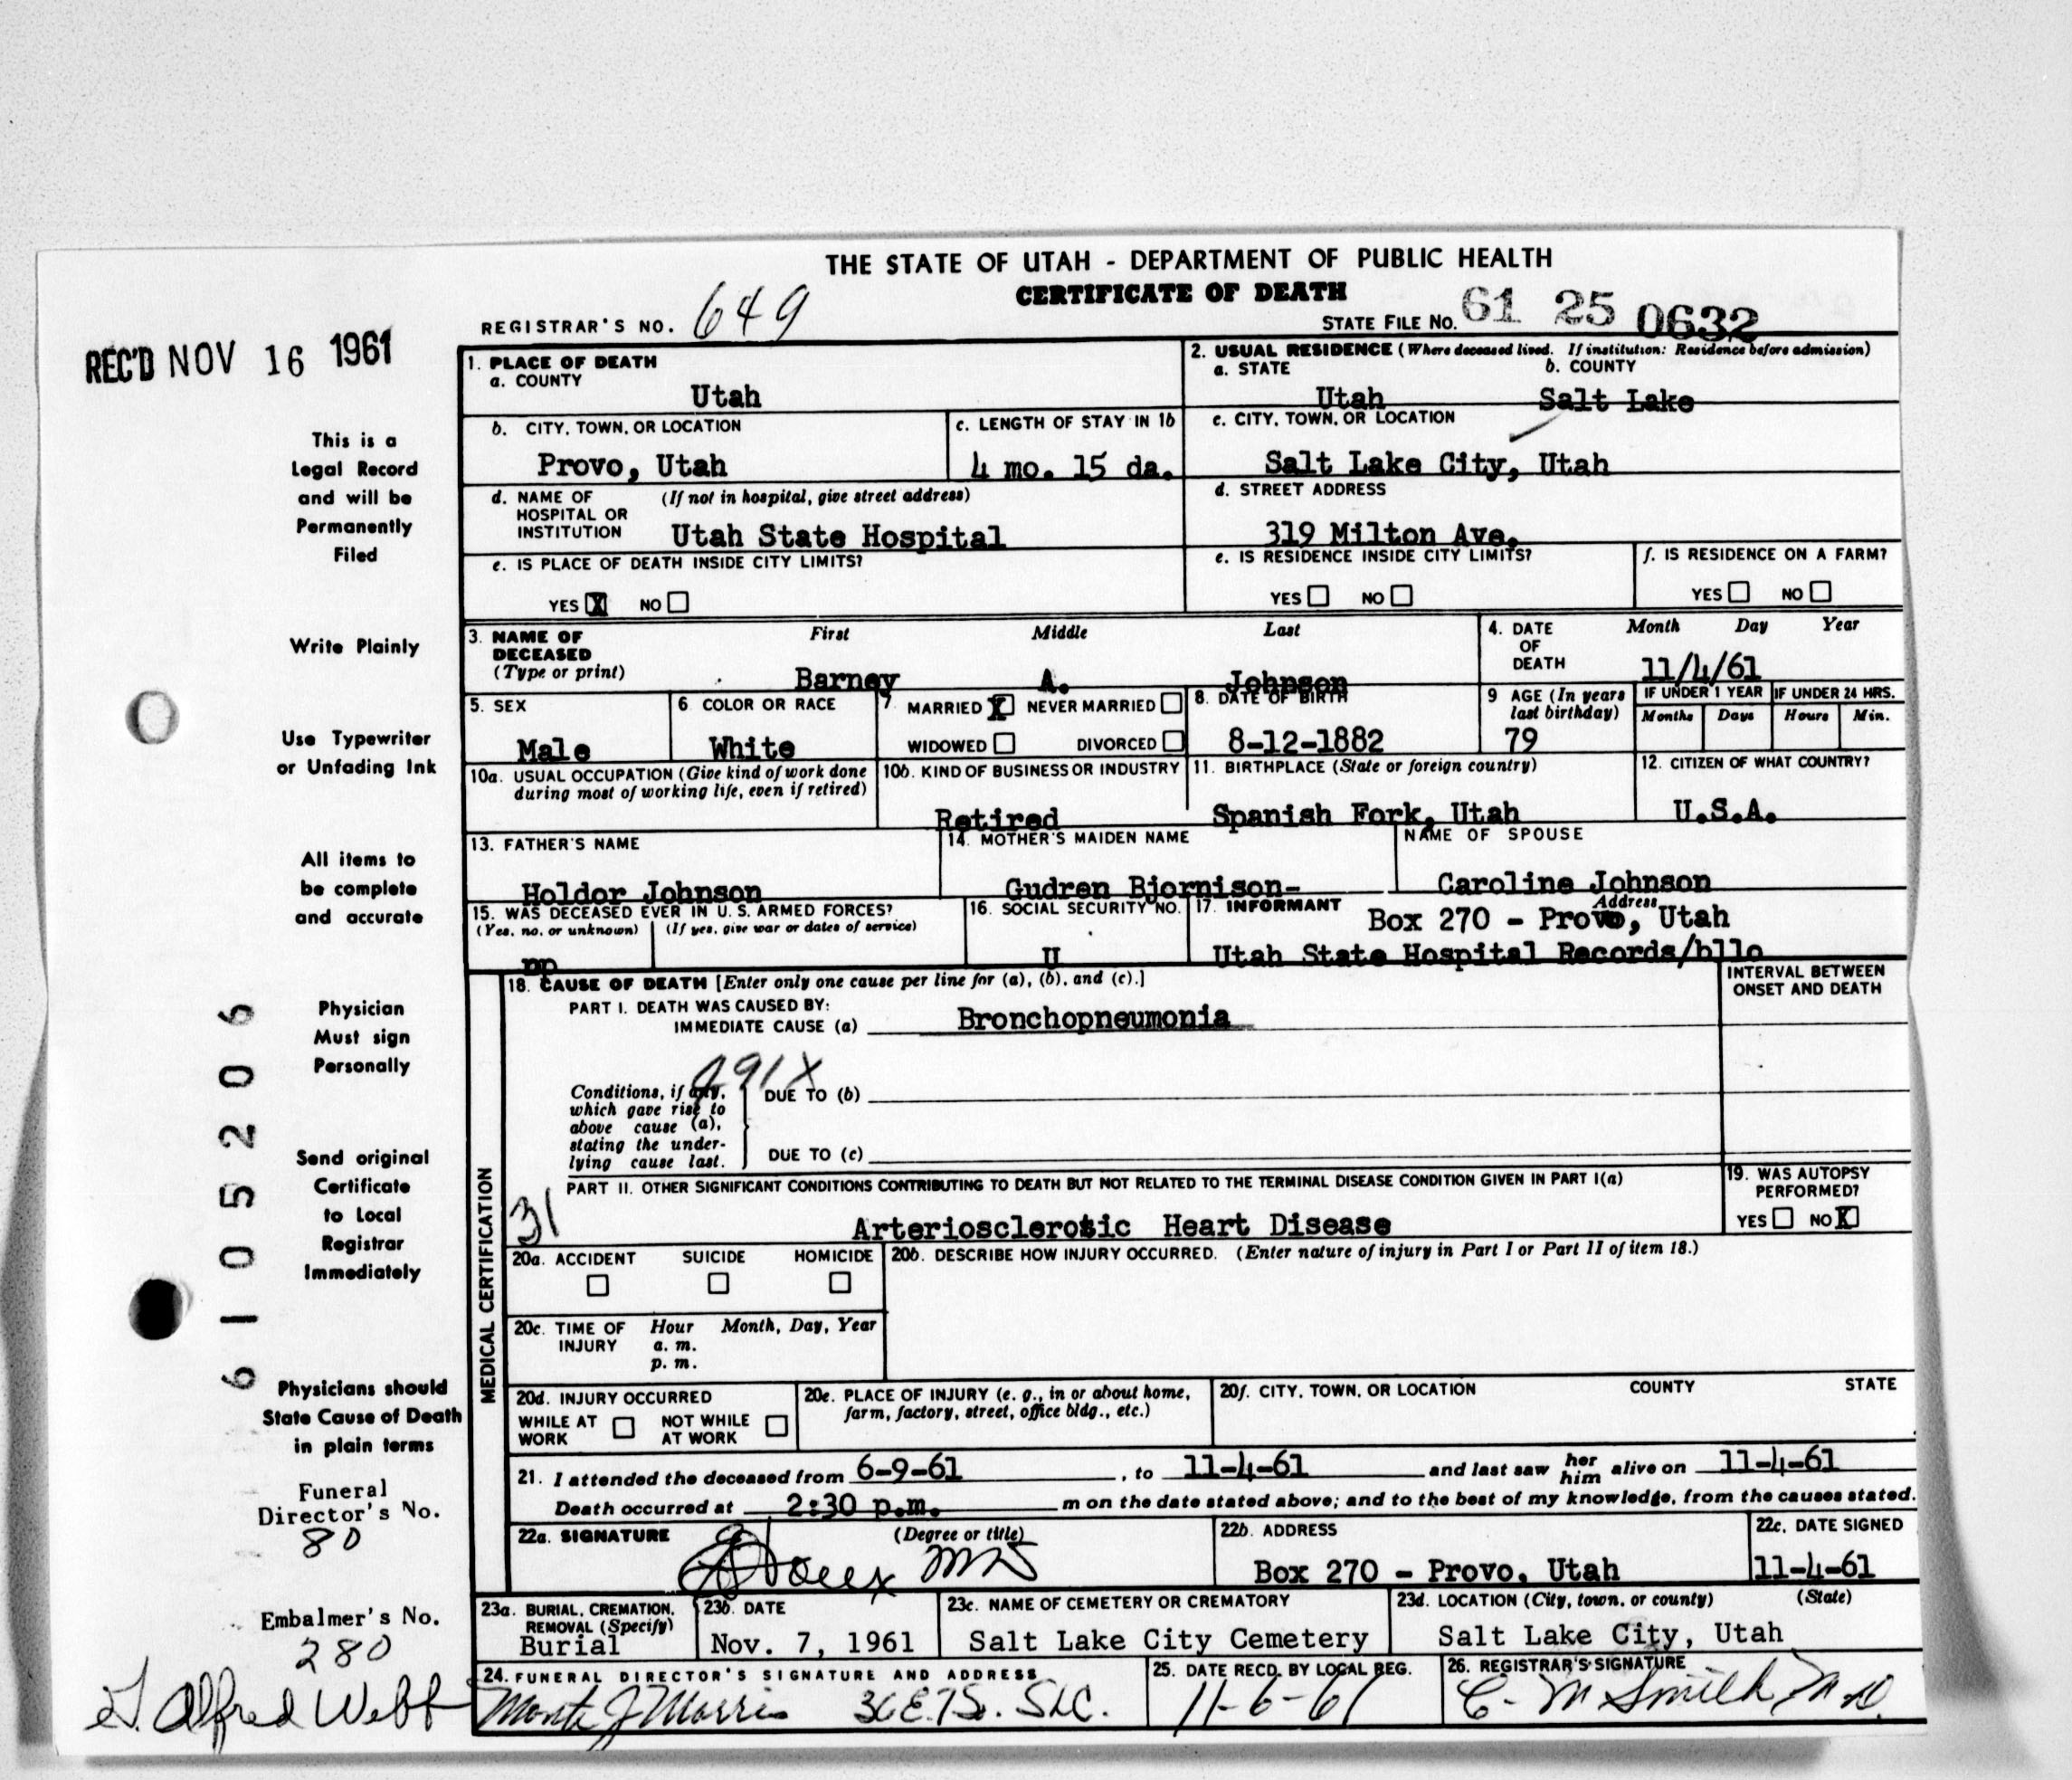 THE STATE OF UTAH - DEPARTMENT OF PUBLIC HEALTH
CERTIFICATE OF DEATH
REGISTRAR'S NO. 649
STATE FILE NO. 61 25 0632
REC'D NOV 16 1961
1. PLACE OF DEATH
a. COUNTY
Utah
2. USUAL RESIDENCE (Where deceased lived. If institution: Residence before admission)
a. STATE b. COUNTY
Utah Salt Lake
b. CITY, TOWN, OR LOCATION
Provo, Utah
c. LENGTH OF STAY IN 1b
4 mo. 15 da.
c. CITY, TOWN, OR LOCATION
Salt Lake City, Utah
d. NAME OF (If not in hospital, give street address)
HOSPITAL OR
INSTITUTION Utah State Hospital
d. STREET ADDRESS
319 Milton Ave.
e. IS PLACE OF DEATH INSIDE CITY LIMITS?
YES X NO
e. IS RESIDENCE INSIDE CITY LIMITS?
YES NO
f. IS RESIDENCE ON A FARM?
YES NO
3. NAME OF DECEASED
(Type or print)
First Middle Last
Barney A. Johnson
4. DATE OF DEATH
Month Day Year
11/4/61
5. SEX
Male
6 COLOR OR RACE
White
7. MARRIED X NEVER MARRIED
WIDOWED DIVORCED
8. DATE OF BIRTH
8-12-1882
9 AGE (In years last birthday)
79
IF UNDER 1 YEAR
Months Days
IF UNDER 24 HRS.
Hours Min.
10a. USUAL OCCUPATION (Give kind of work done
during most of working life, even if retired)
10b. KIND OF BUSINESS OR INDUSTRY
Retired
11. BIRTHPLACE (State or foreign country)
Spanish Fork, Utah
12. CITIZEN OF WHAT COUNTRY?
U.S.A.
13. FATHER'S NAME
Holdor Johnson
14. MOTHER'S MAIDEN NAME
Gudren Bjornison-
NAME OF SPOUSE
Caroline Johnson
15. WAS DECEASED EVER IN U.S. ARMED FORCES?
(Yes, no, or unknown) (If yes, give war or dates of service)
16. SOCIAL SECURITY NO.
U
17. INFORMANT Address
Box 270 - Provo, Utah
Utah State Hospital Records/bllo
MEDICAL CERTIFICATION
18. CAUSE OF DEATH [Enter only one cause per line for (a), (b), and (c).]
INTERVAL BETWEEN
ONSET AND DEATH
PART I. DEATH WAS CAUSED BY:
IMMEDIATE CAUSE (a) Bronchopneumonia
491X
Conditions, if any,
which gave rise to
above cause (a),
stating the under-
lying cause last.
DUE TO (b)
DUE TO (c)
PART II. OTHER SIGNIFICANT CONDITIONS CONTRIBUTING TO DEATH BUT NOT RELATED TO THE TERMINAL DISEASE CONDITION GIVEN IN PART I(a)
31
Arteriosclerotic Heart Disease
19. WAS AUTOPSY
PERFORMED?
YES NO X
20a. ACCIDENT SUICIDE HOMICIDE
20b. DESCRIBE HOW INJURY OCCURRED. (Enter nature of injury in Part I or Part II of item 18.)
20c. TIME OF INJURY
Hour Month, Day, Year
a. m.
p. m.
20d. INJURY OCCURRED
WHILE AT WORK NOT WHILE AT WORK
20e. PLACE OF INJURY (e. g., in or about home,
farm, factory, street, office bldg., etc.)
20f. CITY, TOWN, OR LOCATION COUNTY STATE
21. I attended the deceased from 6-9-61, to 11-4-61 and last saw her him alive on 11-4-61
Death occurred at 2:30 p.m. m on the date stated above; and to the best of my knowledge, from the causes stated.
22a. SIGNATURE (Degree or title)
MD
22b. ADDRESS
Box 270 - Provo, Utah
22c. DATE SIGNED
11-4-61
23a. BURIAL, CREMATION,
REMOVAL (Specify)
Burial
23b. DATE
Nov. 7, 1961
23c. NAME OF CEMETERY OR CREMATORY
Salt Lake City Cemetery
23d. LOCATION (City, town, or county) (State)
Salt Lake City, Utah
24. FUNERAL DIRECTOR'S SIGNATURE AND ADDRESS
Monte J Morris 36 E. 7 S. SLC.
25. DATE RECD. BY LOCAL REG.
11-6-61
26. REGISTRAR'S SIGNATURE
C. M Smith M D.
This is a
Legal Record
and will be
Permanently
Filed
Write Plainly
Use Typewriter
or Unfading Ink
All items to
be complete
and accurate
Physician
Must sign
Personally
Send original
Certificate
to Local
Registrar
Immediately
Physicians should
State Cause of Death
in plain terms
Funeral
Director's No.
80
Embalmer's No.
280
Alfred Webb
6105206